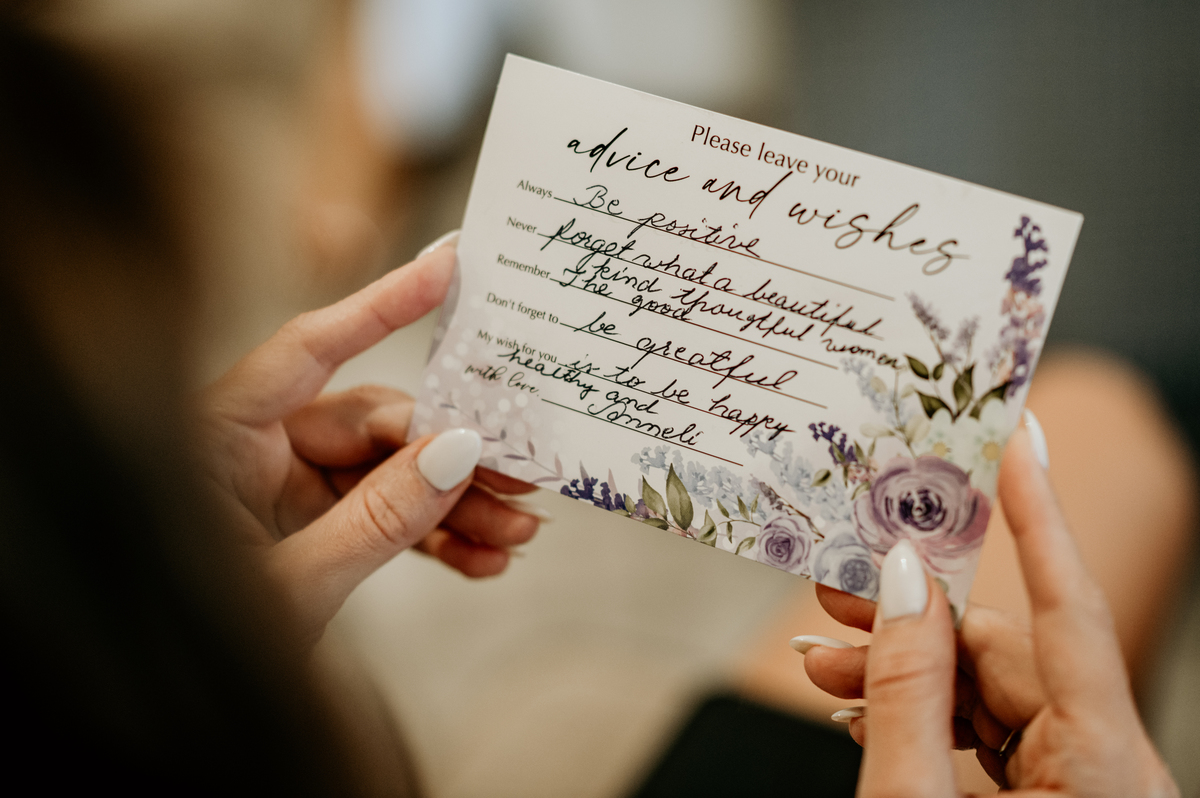 Please leave your
advice and wishes
Always Be positive
Never forget what a beautiful
kind thoughtful women
Remember The good
Don't forget to be greatful
My wish for you is to be happy
healthy and
with love, Sonneli